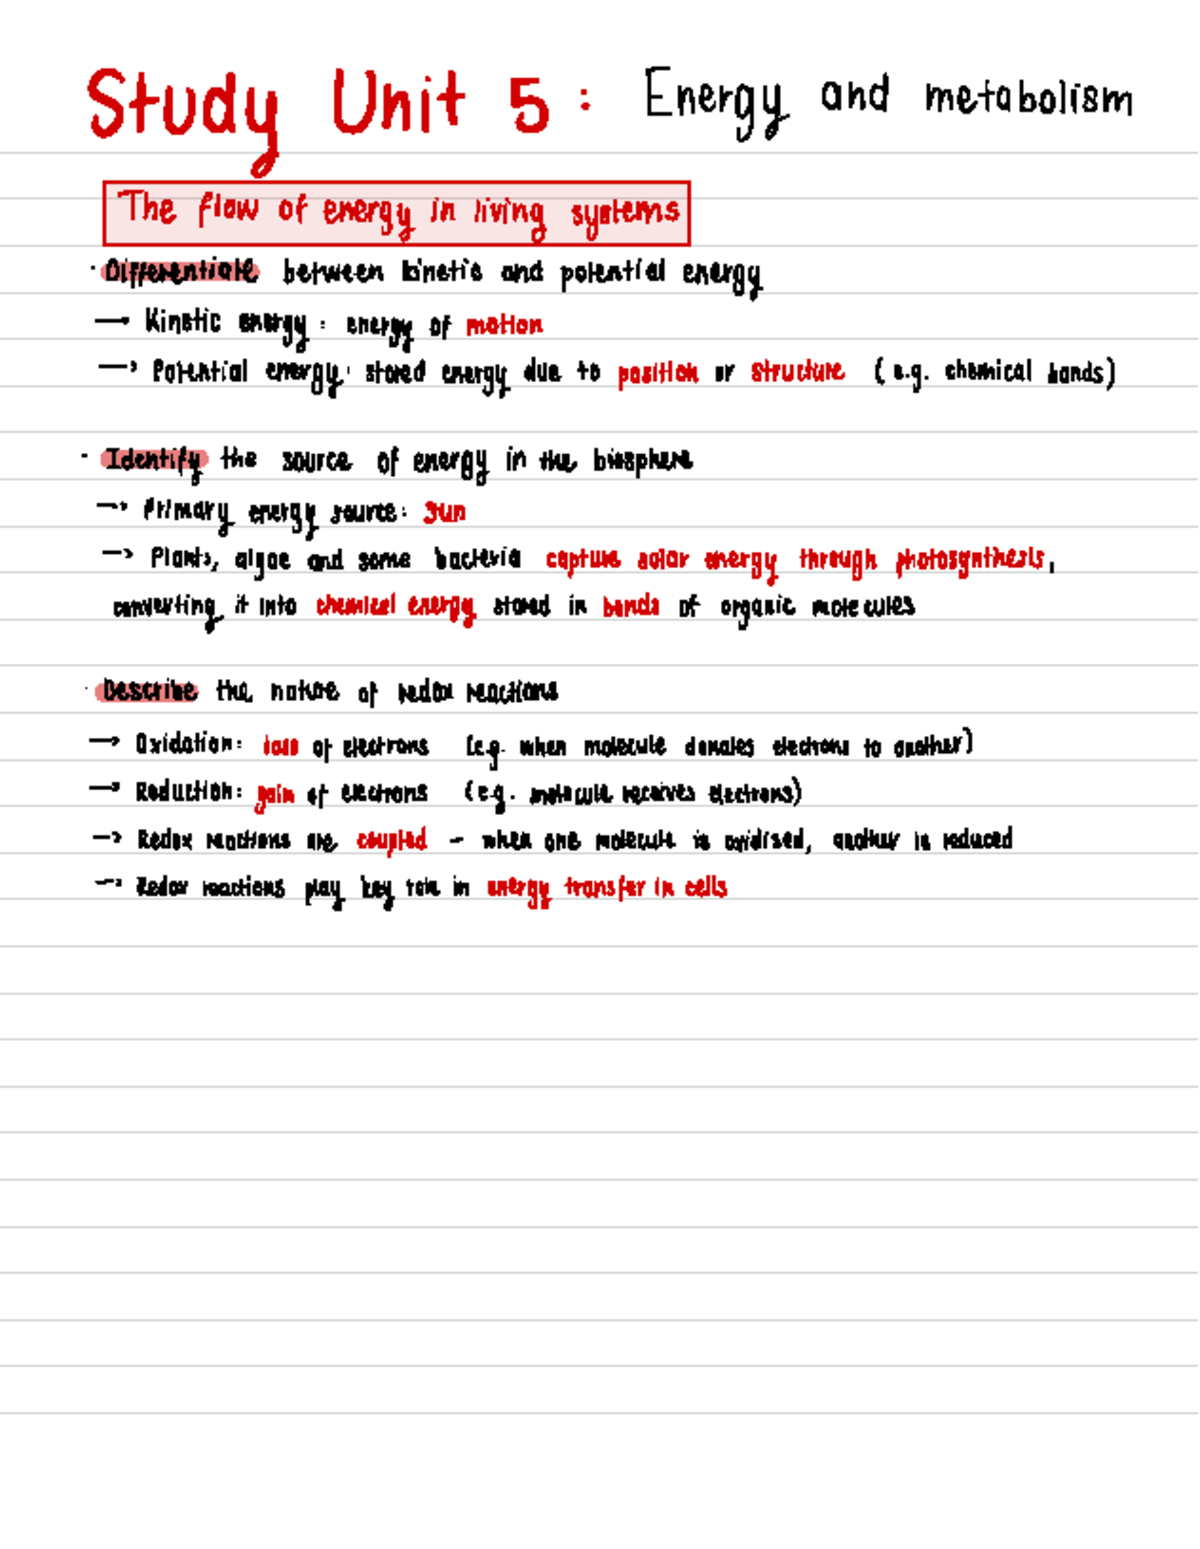 Study Unit 5: Energy and metabolism
The flow of energy in living systems
· Differentiate between kinetic and potential energy
→ Kinetic energy: energy of motion
→ Potential energy: stored energy due to position or structure (e.g. chemical bonds)
· Identify the source of energy in the biosphere
→ Primary energy source: Sun
→ Plants, algae and some bacteria capture solar energy through photosynthesis,
converting it into chemical energy stored in bonds of organic molecules
· Describe the nature of redox reactions
→ Oxidation: loss of electrons (e.g. when molecule donates electrons to another)
→ Reduction: gain of electrons (e.g. molecule receives electrons)
→ Redox reactions are coupled – when one molecule is oxidised, another is reduced
→ Redox reactions play key role in energy transfer in cells